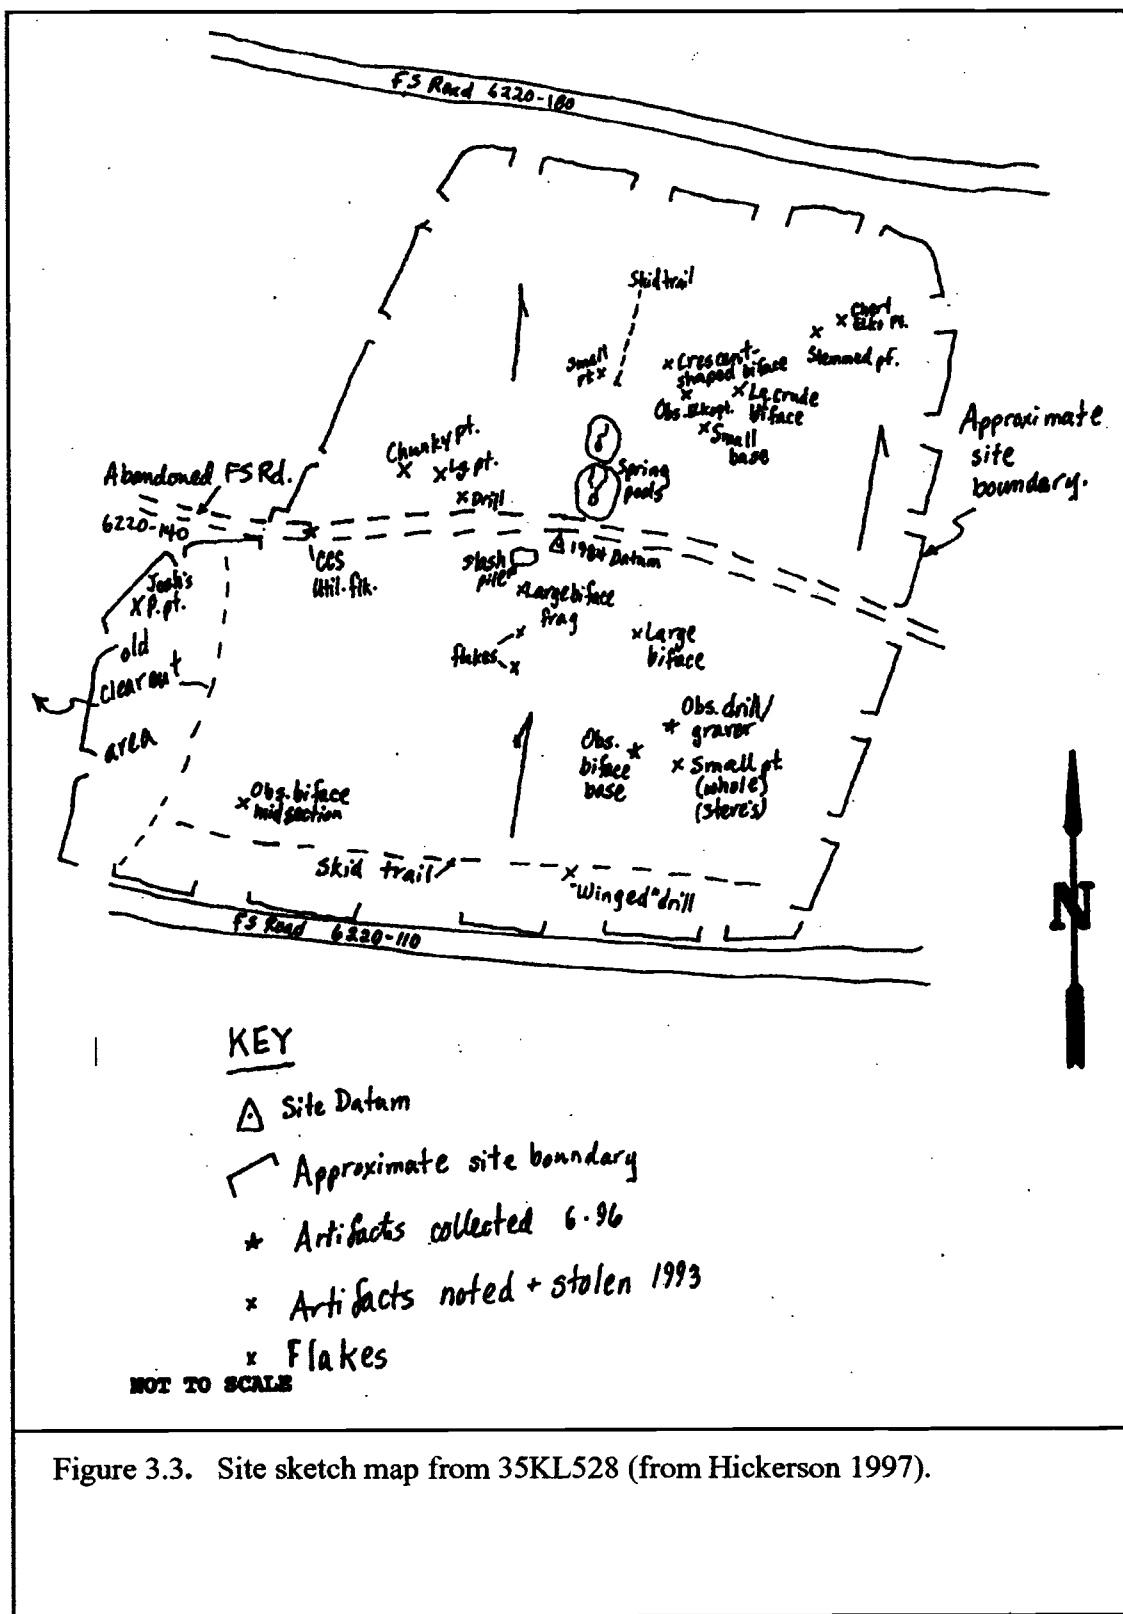 FS Road 6220-180
Skid trail
Chert
Elko Pt.
Stemmed pt.
Small
pt
Crescent-
shaped biface
Lg. crude
biface
Obs. Elko pt.
Small
base
Approximate
site
boundary.
Chunky pt.
Lg. pt.
Drill
Spring
pools
Abandoned FS Rd.
6220-140
CCS
Util. flk.
Slash
pile
1984 Datum
Josh's
P. pt.
Large biface
frag
old
clear cut
area
flakes
Large
biface
Obs. drill/
graver
Obs.
biface
base
Small pt
(whole)
(steve's)
Obs. biface
midsection
Skid trail
"Winged" drill
FS Road 6220-110
N
KEY
Site Datum
Approximate site boundary
Artifacts collected 6.96
Artifacts noted + stolen 1993
Flakes
NOT TO SCALE
Figure 3.3. Site sketch map from 35KL528 (from Hickerson 1997).